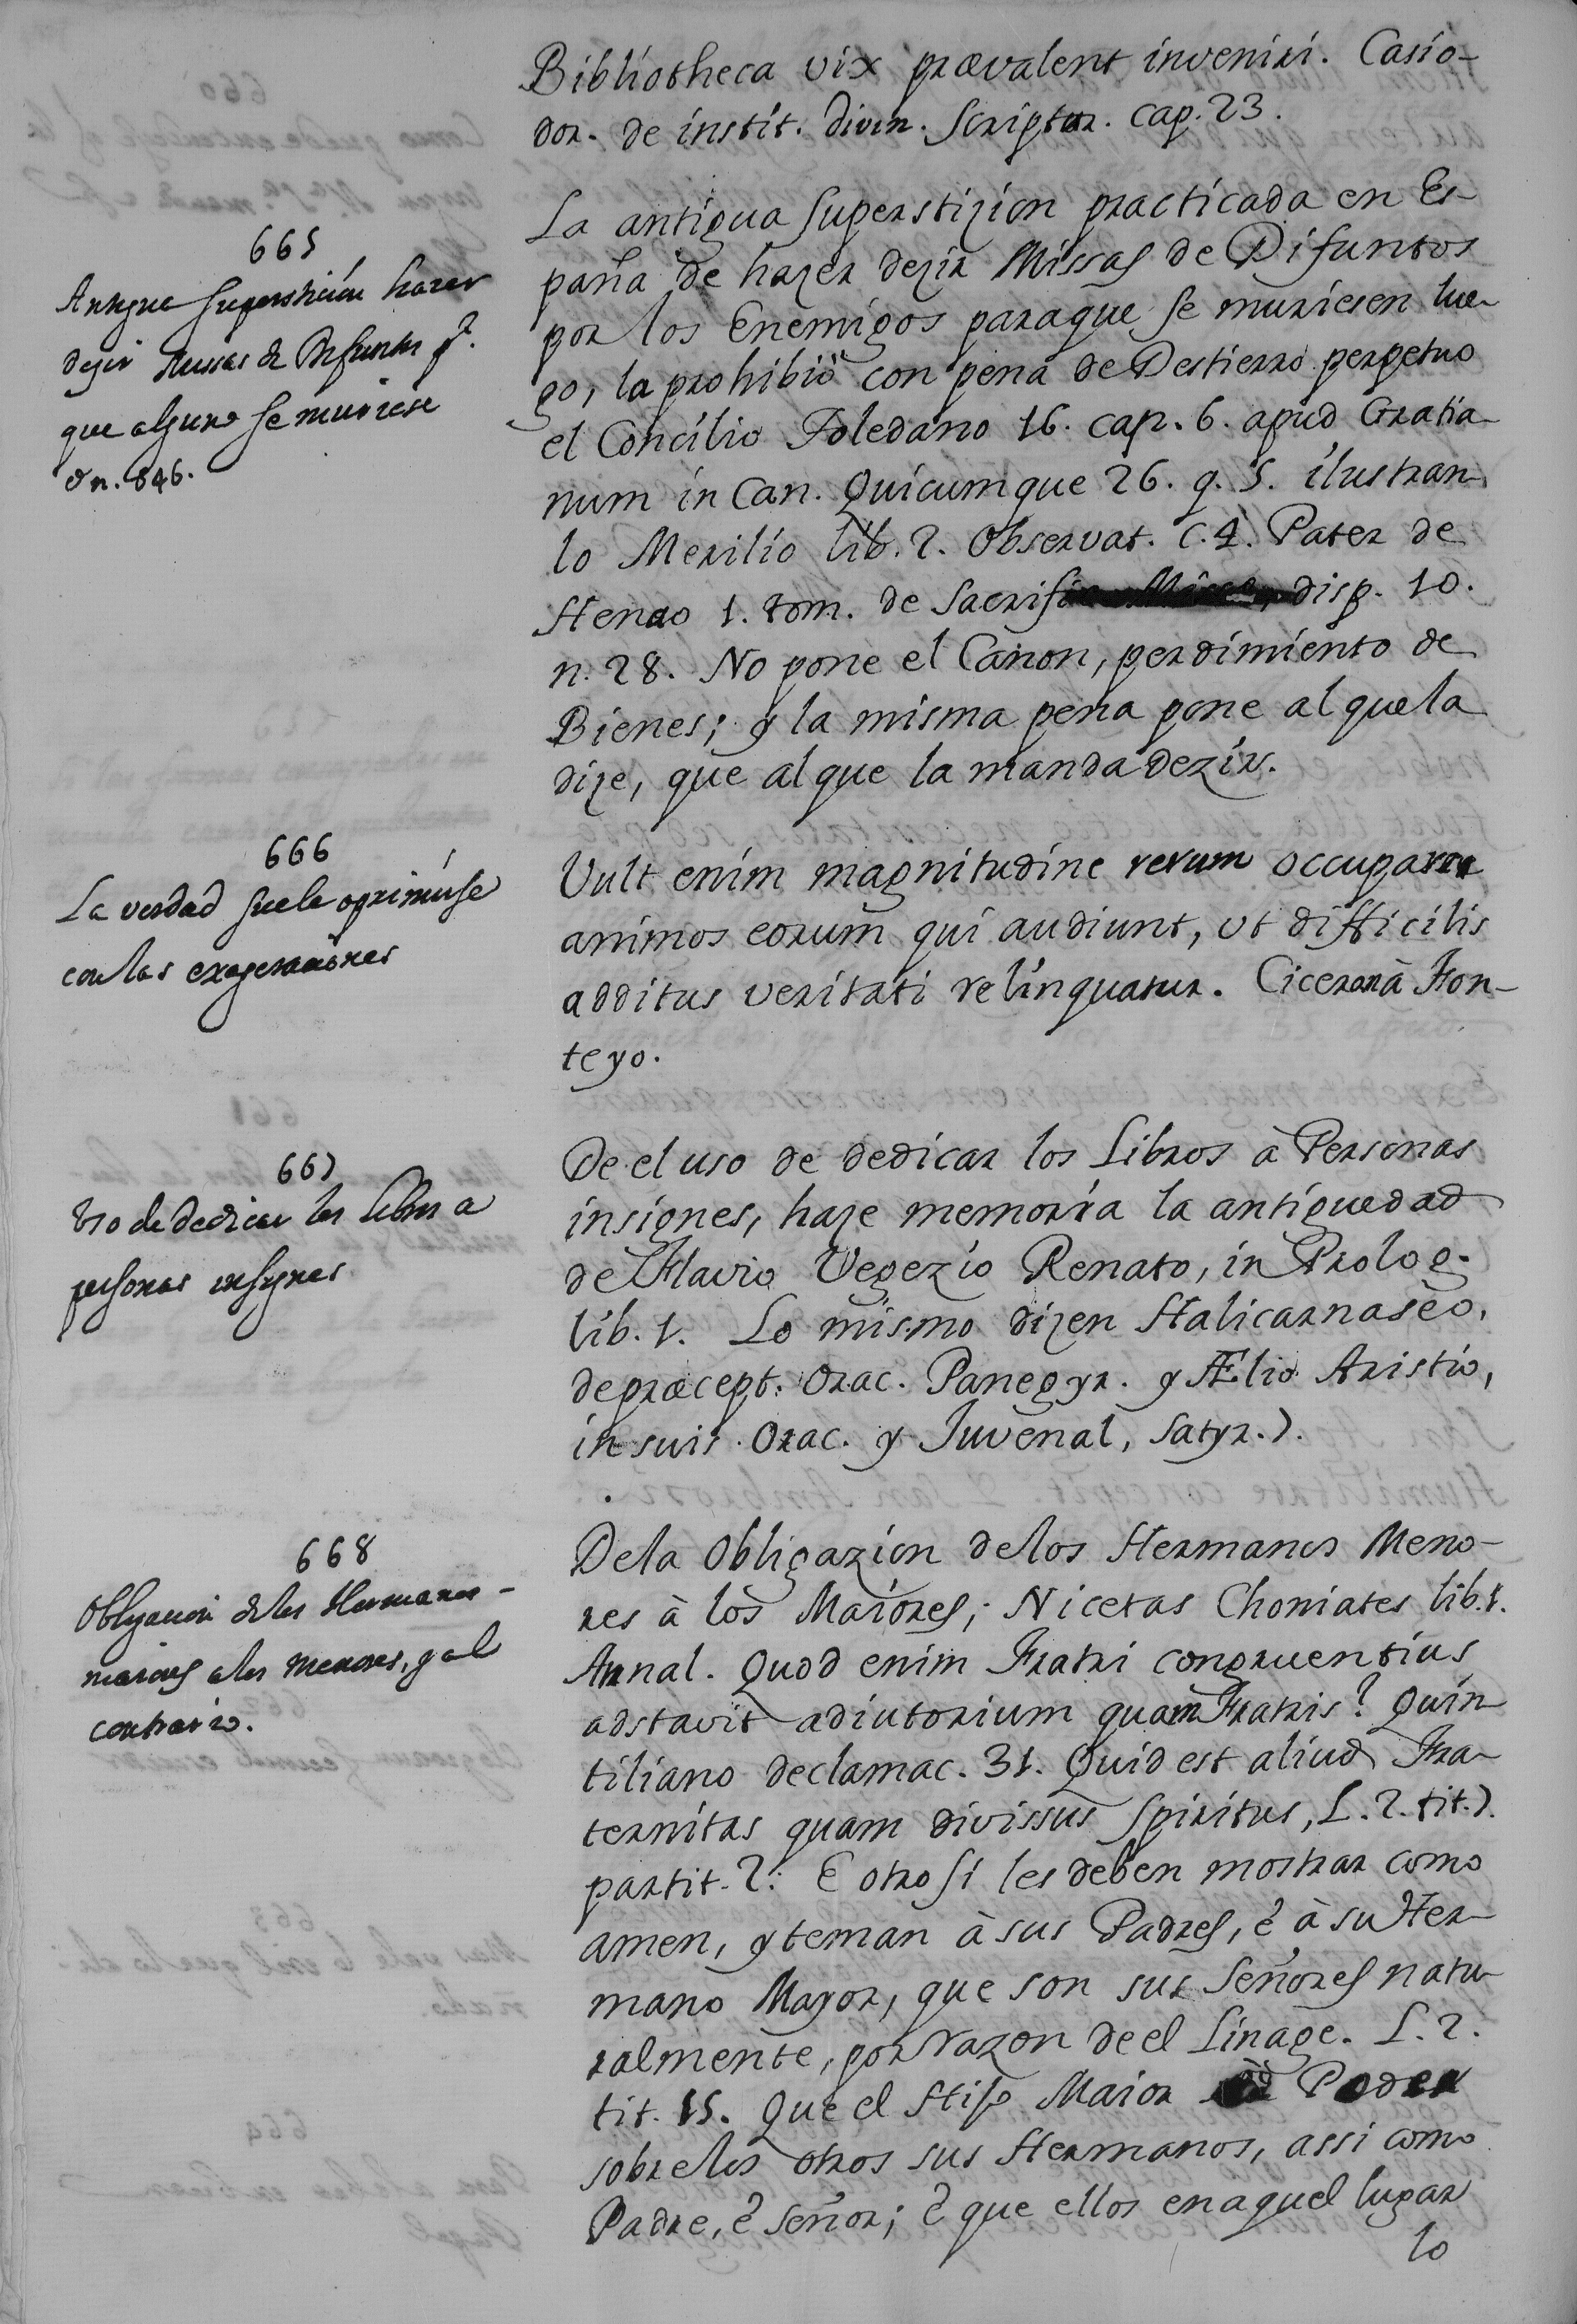 Bibliotheca vix prævalent inveniri. Casio-
dor. de instit. divin. Scriptur. cap. 23.
665
Antigua superstición hazer
dezir Missas de Difuntos pª.
que alguno se muriese
V n. 846.
La antigua Superstizion practicada en Es-
paña de hazer dezir Missas de Difuntos
por los Enemigos paraque se muriesen lue-
go, la prohibiò con pena de Destierro perpetuo
el Concilio Toledano 16. cap. 6. apud Gratia-
num in Can. Quicumque 26. q. 5. ilustran-
lo Merilio lib. 2. Observat. c. 4. Pater de
Henao 1. tom. de Sacrif disp. 10.
n. 28. No pone el Canon, perdimiento de
Bienes; y la misma pena pone al que la
dize, que al que la manda dezir.
666
La verdad suele oprimirse
con las exageraciones
Vult enim magnitudine rerum occupare
animos eorum qui audiunt, ut difficilis
additus veritati relinquatur. Ciceron à Fon-
teyo.
667
Uso de dedicar los libros a
personas insignes
De el uso de dedicar los Libros à Personas
insignes, haze memoria la antiguedad
de Flavio Vegezio Renato, in Prolog.
lib. 1. Lo mismo dizen Halicarnaseo,
de præcept. Orac. Panegyr. y Ælio Aristio,
in suis Orac. y Juvenal, Satyr. 7.
668
Obligacion de los Hermanos
maiores a los menores, y al
contrario.
De la Obligazion de los Hermanos Meno-
res à los Maiores; Nicetas Choniates lib. 1.
Annal. Quod enim Fratri congruentius
adstavit adiutorium quam Fratris? Quin-
tiliano declamac. 31. Quid est aliud Fra-
ternitas quam divissus Spiritus, L. 2. tit. 7.
partit. 2. E otro si les deben mostrar como
amen, y teman à sus Padres, è à su Her-
mano Mayor, que son sus Señores natu-
ralmente, por razon de el Linage. L. 2.
tit. 15. Que el Hijo Maior Poder
sobre los otros sus Hermanos, assi como
Padre, è Señor; è que ellos en aquel lugar
lo